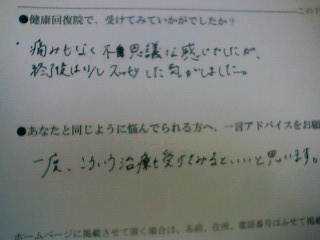 この
●健康回復院で、受けてみていかがでしたか?
・痛みもなく不思議な感じでしたが、
終了後は少しスッキリした気がしました。
●あなたと同じように悩んでられる方へ、一言アドバイスをお願
一度、こういう治療を受けてみるといいと思います。
ホームページに掲載させて頂く場合は、名前、住所、電話番号はふせて掲載